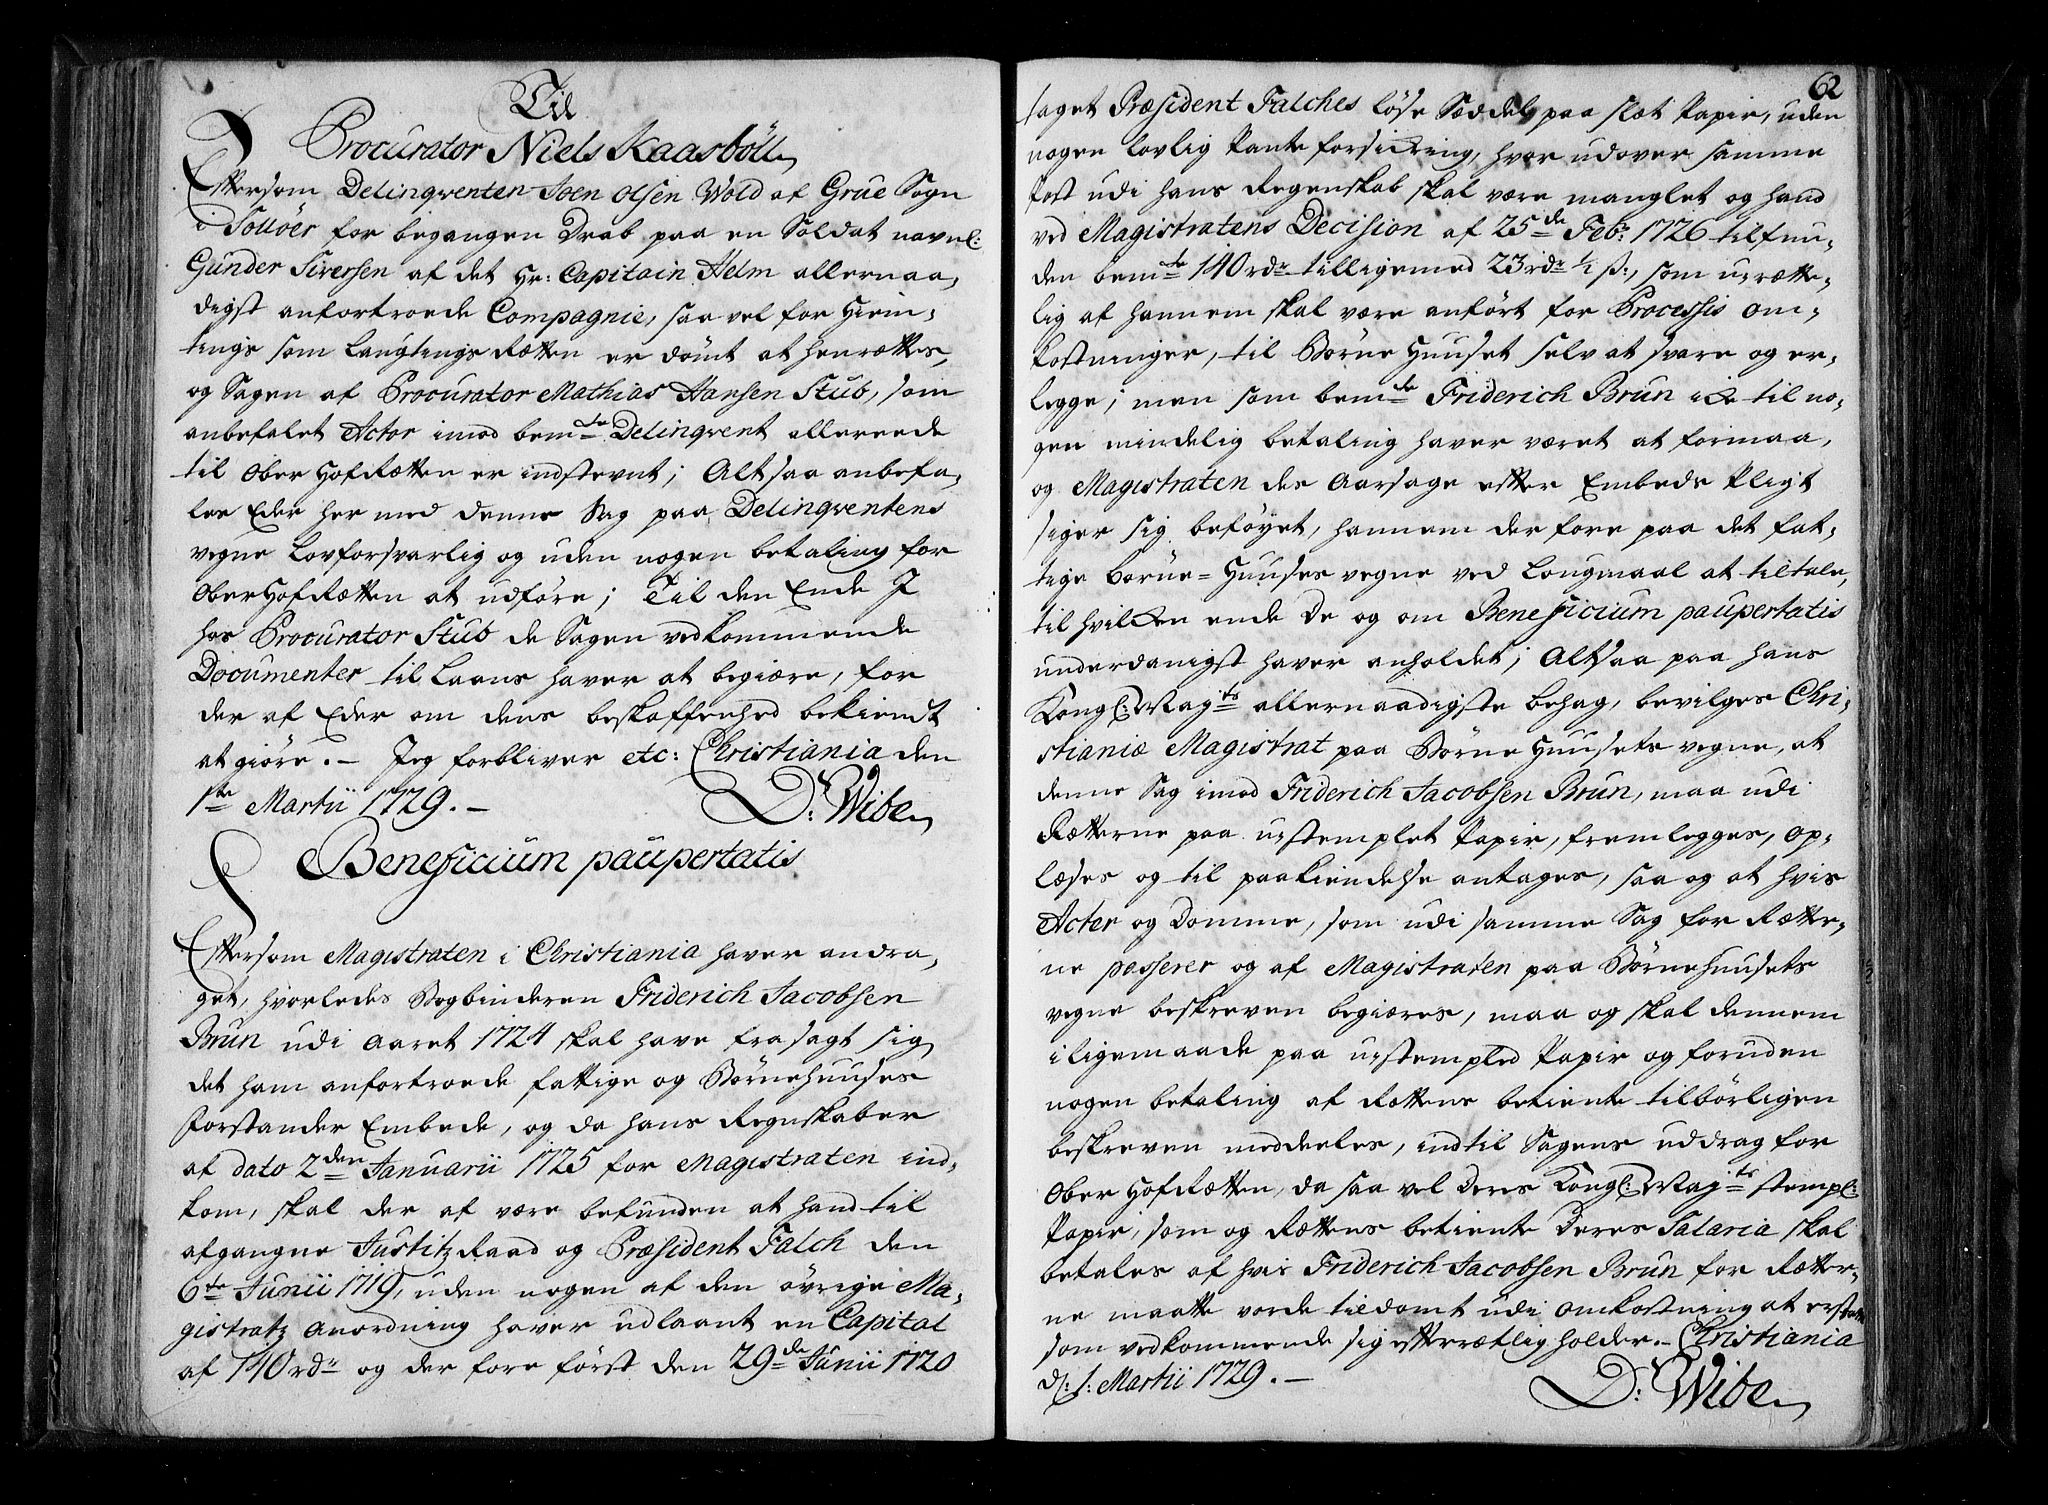 Til
Procurator Niels Kaasböll
Eftersom Delinqventen Joen Olsen Wold af Grue Sogn
i Sollöer for begangen Drab paa en Soldat navnl:
Gunder Siversen af det Hr: Capitain Helm allernaa-
digst anfortroede Compagnie, saa vel for Hiem-
tings som Laugtings Rætten er dömt at henrettes,
og Sagen af Procurator Mathias Hansen Stub, som
anbefalet Actor imod bemte Delinqvent allereede
til Ober Hof Rætten er indstevnt; Altsaa anbefa-
les Eder her med denne Sag paa Delinqventens
vegne Lovforsvarlig og uden nogen betaling for
Ober Hof Rætten at udföre; Til den Ende I
hos Procurator Stub de Sagen vedkommende
Documenter til Laans haver at begiære, for
der af Eder om dens beskaffenhed bekiendt
at giöre. - Jeg forbliver etc: Christiania den
1te Martii 1729. -
D: Wibe
Beneficium paupertatis
Eftersom Magistraten i Christiania haver andra-
get, hvorledes Bogbinderen Friderich Jacobsen
Brun udi Aaret 1724 skal have frasagt sig
det ham anfortroede fattige og Börnehuuses
Forstander Embede, og da hans Regnskaber
af dato 2den Januarii 1725 for Magistraten ind-
kom, skal der af være befunden at hand til
afgangne Justitz Raad og Præsident Falch den
6te Junii 1719, uden nogen af den övrige Ma-
gistratz Anordning haver udlaant en Capital
af 140 rdr og der fore först den 29de Junii 1720
62
taget Præsident Falches löse Seddel paa slæt Papir, uden
nogen lovlig Pante forsickring, hvor udover samme
Post udi hans Regenskab skal være manglet og hand
ved Magistratens Decision af 25de Febr: 1726 tilfun-
den bemte 140 rdr tilligemed 23 rdr ½ s:, som urætte-
lig af hannem skal være anfört for Processis Om-
kostninger, til Börne Huuset selv at svare og er-
legge; men som bemte Friderich Brun icke til no-
gen mindelig betaling haver været at formaa,
og Magistraten des Aarsage efter Embeds Pligt
siger sig beföyet, hannem der fore paa det fat-
tige Börne-Huuses vegne ved Lougmaal at tiltale,
til hvilken ende De og om Beneficium paupertatis
underdanigst haver anholdet; Altsaa paa Hans
Kongl: Mayts allernaadigste behag, bevilges Chri-
stianiæ Magistrat paa Börne Huusets vegne, at
denne Sag imod Friderich Jacobsen Brun, maa udi
Rætterne paa ustemplet Papir, fremlegges, op-
læses og til paakiendelse antages, saa og at hvis
Acter og Domme, som udi samme Sag for Rætte-
ne passerer og af Magistraten paa Börnehuusets
vegne beskreven begiæres, maa og skal dennem
iligemaade paa ustempled Papir og foruden
nogen betaling af Rettens betiente tilbörligen
beskreven meddeeles, indtil Sagens uddrag for
Ober Hof Rætten, da saa vel Deres Kongl: Mayts stempl:
Papir, som og Rættens betiente Deres Salaria skal
betales af hvis Friderich Jacobsen Brun for Rætter-
ne maatte vorde tildömt udi Omkostning at erstatte
som vedkommende sig efterrætlig holder. - Christiania
d: 1: Martii 1729. -
D: Wibe